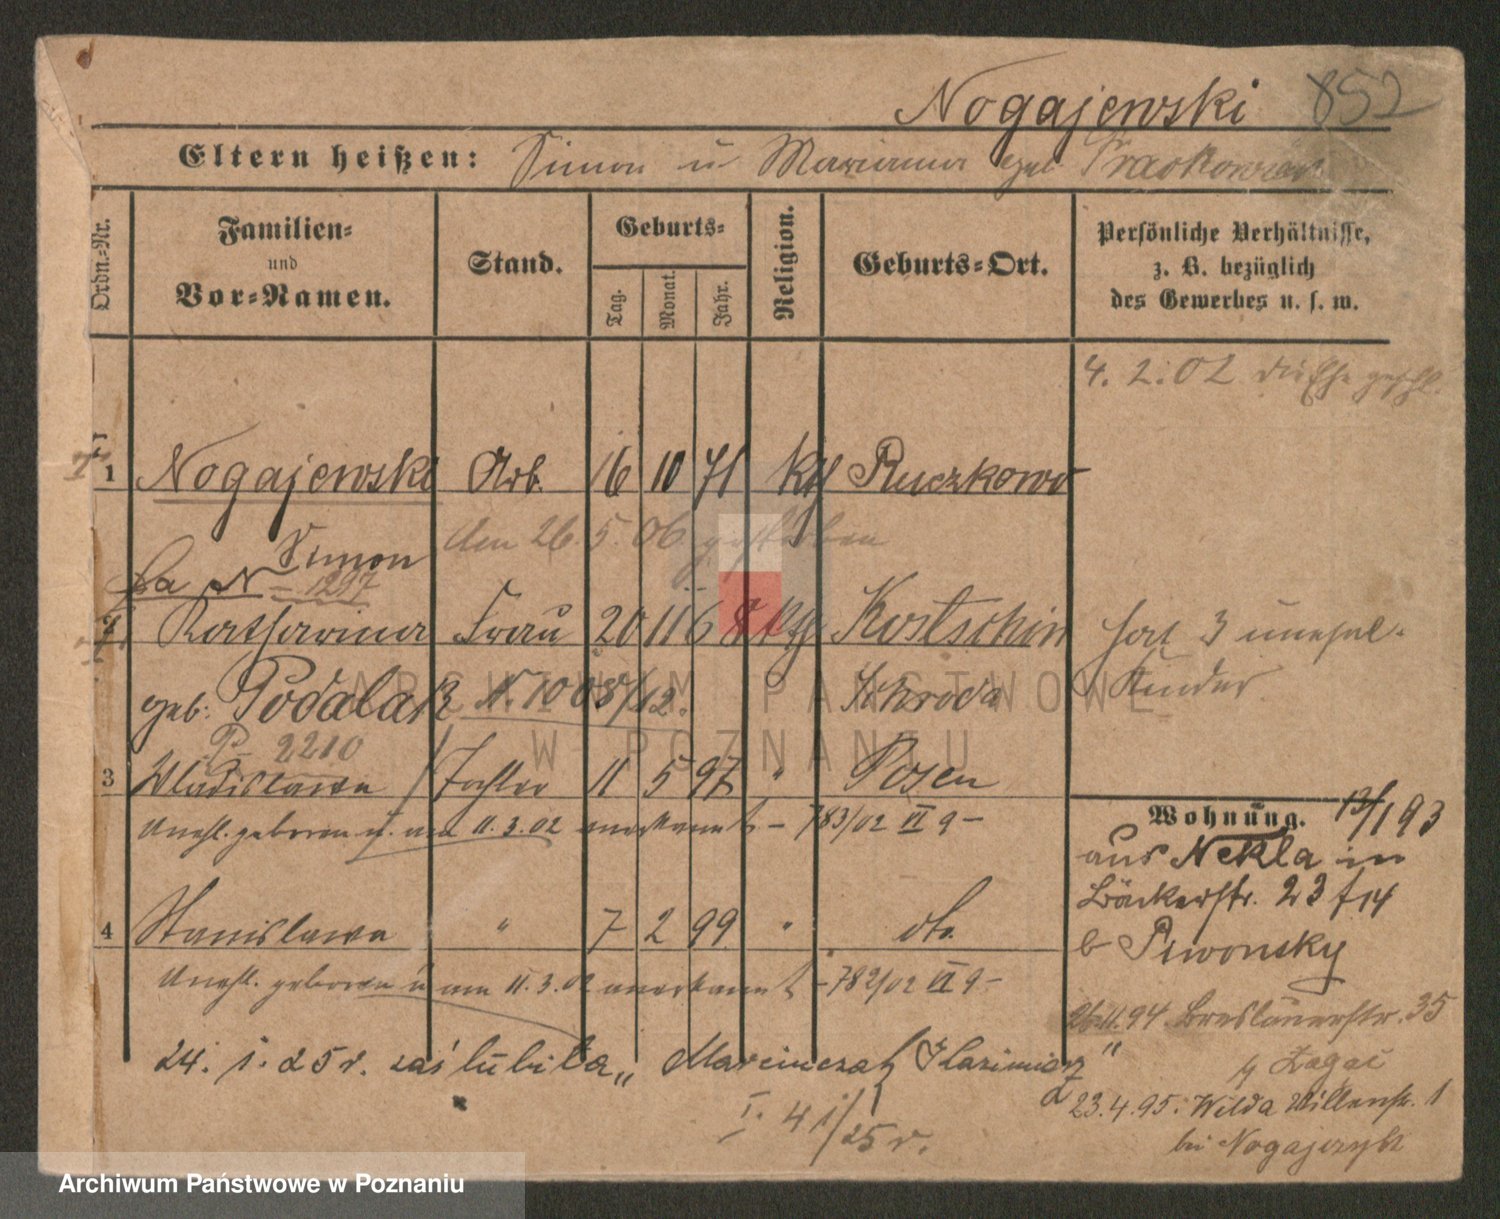 Nogajewski 852
Eltern heißen: Simon u Marianna geb
Ordn.-Nr.
Familien-
und
Vor-Namen.
Stand.
Geburts-
Tag.
Monat.
Jahr.
Religion.
Geburts-Ort.
Persönliche Verhältnisse,
z. B. bezüglich
des Gewerbes u. s. w.
4. 2. 02 die Ehe geschl.
1 Nogajewski Arb. 16 10 71 kth Ruczkowo
Simon
den 26. 5. 06. gestorben
N 1297
2 Katharina Frau 20 11 6 kth Kostschin
hat 3 unehel.
Kinder
geb. Podalak N. 1008/12. Schroda
P 2210
3 Wladislawa Tochter 11 5 97 " Posen
Unehl. geboren u. am 11. 3. 02 anerkannt – 783/02 VI 9 –
4 Stanislawa " 7 2 99 " dto.
Unehl. geboren u am 11. 3. 02 anerkannt – 782/02 VI 9 –
24. 1. 25 r. zaślubiła „Marcinczak Kazimierz"
I. 41/25 r.
Wohnung. 13/1 93
aus Nekla in
Bäckerstr. 23
b Piwonsky
26.11.94 Breslauerstr. 35
23.4.95. Wilda 1
bei
ARCHIWUM PAŃSTWOWE
W POZNANIU
Archiwum Państwowe w Poznaniu